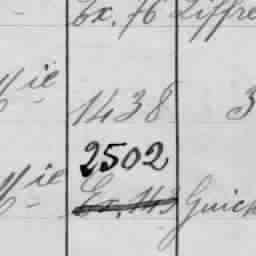 Ex. 76 Liffre
Mie 1438 3
2502
Mie Ex. 143 Guich